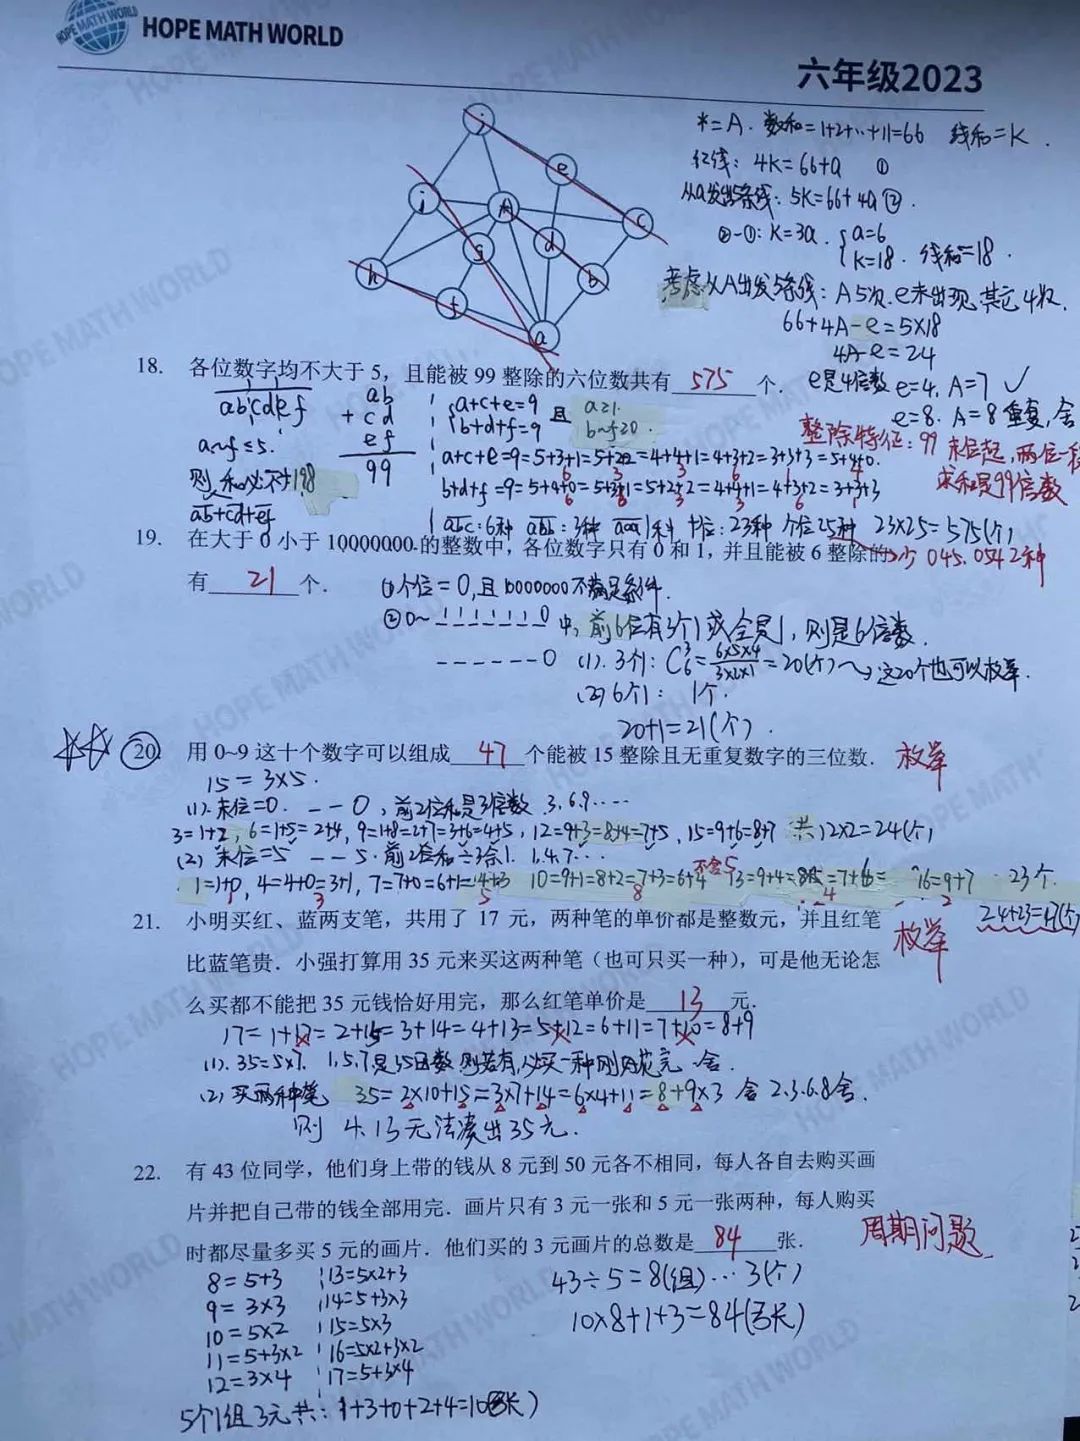 HOPE MATH WORLD
六年级2023
*=A. 数和=1+2+…+11=66 线和=K.
红线: 4K=66+a ①
从a发出5条线: 5K=66+4a ②.
②-①: K=3a. { a=6
K=18. 线和=18.
考虑从A出发5条线: A5次, e未出现, 其它4次.
66+4A-e=5×18
4A-e=24
e是4倍数 e=4. A=7 ✓
e=8. A=8重复, 舍
j
e
i
A
c
g
d
h
b
f
a
18. 各位数字均不大于 5，且能被 99 整除的六位数共有 575 个.
abcdef
a~f≤5.
则和必不为198
ab+cd+ef
ab
+ cd
ef
99
{ a+c+e=9
b+d+f=9 且 a≥1.
b~f≥0.
整除特征: 99 末位起, 两位一段
求和是99倍数
a+c+e=9=5+3+1=5+2+2=4+4+1=4+3+2=3+3+3=5+4+0.
6 3 3 6 1 4
b+d+f=9=5+4+0=5+3+1=5+2+2=4+4+1=4+3+2=3+3+3
6 6 3 3 6 1
abc: 6种 abb: 3种 aaa 1种 十位: 23种 个位25种 23×25=575(个)
少 045. 054 2种
19. 在大于 0 小于 10000000 的整数中，各位数字只有 0 和 1，并且能被 6 整除的
有 21 个.
①个位=0, 且10000000不满足条件.
②0~ 1111110 中, 前6位有3个1或全是1, 则是6倍数.
------0 (1). 3个1: C₆³=6×5×4/3×2×1=20(个) 这20个也可以枚举.
(2) 6个1: 1个.
20+1=21(个).
20. 用 0~9 这十个数字可以组成 47 个能被 15 整除且无重复数字的三位数. 枚举
15=3×5.
(1). 末位=0. — — 0, 前2位和是3倍数 3.6.9.…
3=1+2, 6=1+5=2+4, 9=1+8=2+7=3+6=4+5, 12=9+3=8+4=7+5, 15=9+6=8+7 共12×2=24(个)
(2) 末位=5 — — 5. 前2位和÷3余1. 1.4.7…
不含5
1=1+0, 4=4+0=3+1, 7=7+0=6+1=4+3 10=9+1=8+2=7+3=6+4 13=9+4=8+5=7+6= 16=9+7 23个.
24+23=47(个)
21. 小明买红、蓝两支笔，共用了 17 元，两种笔的单价都是整数元，并且红笔
比蓝笔贵．小强打算用 35 元来买这两种笔（也可只买一种），可是他无论怎 枚举
么买都不能把 35 元钱恰好用完，那么红笔单价是 13 元.
17=1+12=2+15=3+14=4+13=5+12=6+11=7+10=8+9
(1). 35=5×7. 1.5.7是35因数, 则若有, 只买一种刚用完 舍.
(2) 买两种笔 35=2×10+15=3×7+14=6×4+11=8+9×3 舍 2.3.6.8舍.
则 4.13无法凑出35元.
22. 有 43 位同学，他们身上带的钱从 8 元到 50 元各不相同，每人各自去购买画
片并把自己带的钱全部用完．画片只有 3 元一张和 5 元一张两种，每人购买
时都尽量多买 5 元的画片．他们买的 3 元画片的总数是 84 张. 周期问题
8=5+3 13=5×2+3
9=3×3 14=5+3×3
10=5×2 15=5×3
11=5+3×2 16=5×2+3×2
12=3×4 17=5+3×4
43÷5=8(组)…3(个)
10×8+1+3=84(张)
5个1组3元共: 1+3+0+2+4=10(张)